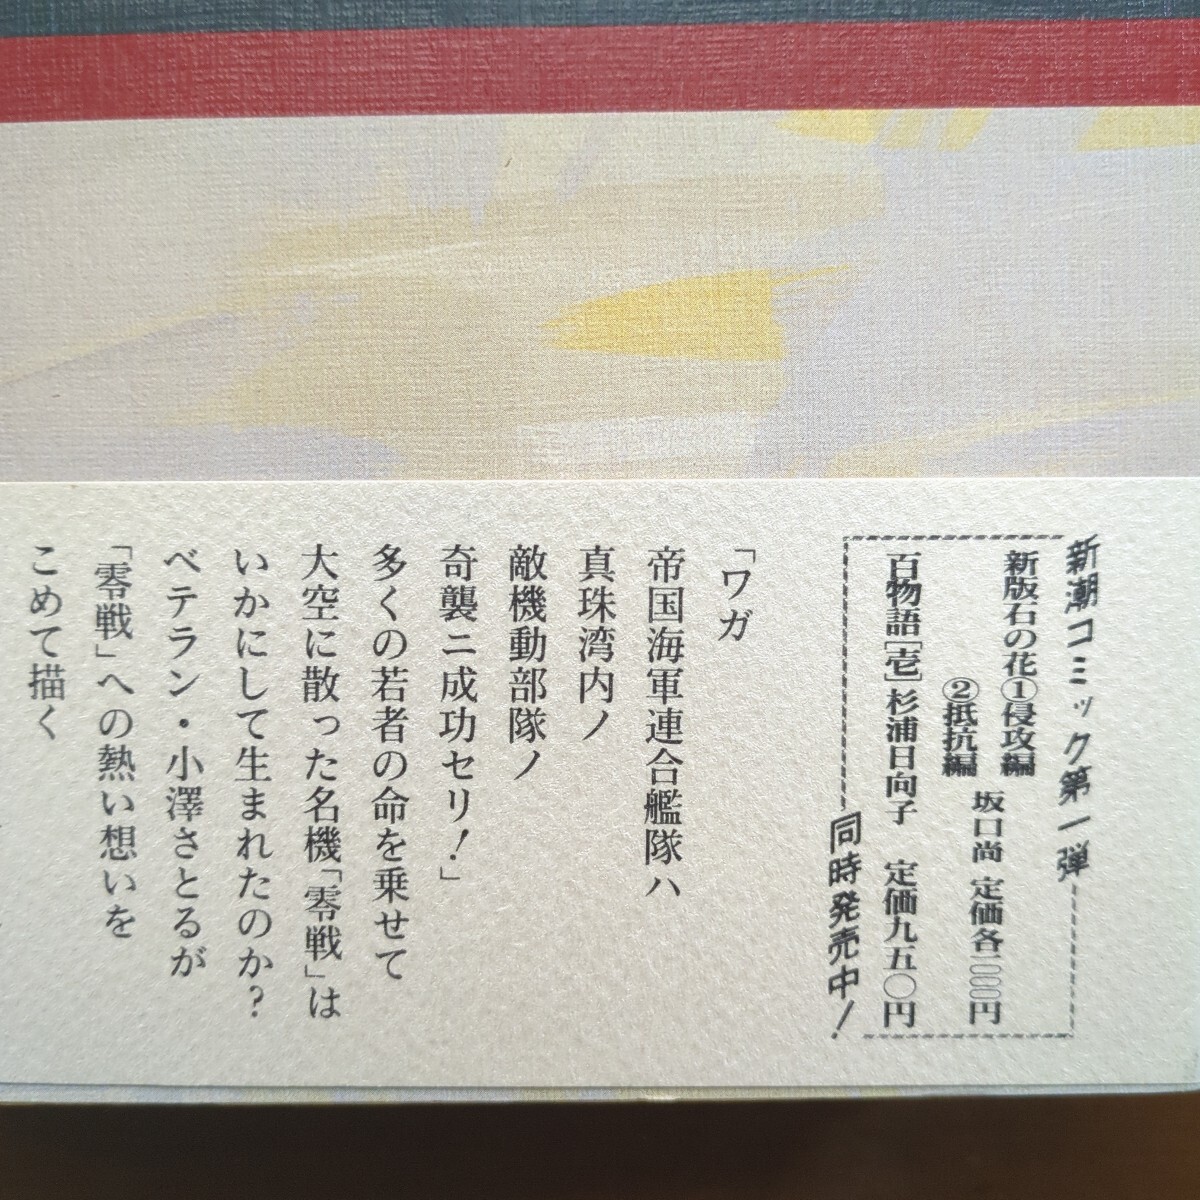 新潮コミック第一弾
新版石の花①侵攻編
②抵抗編
坂口尚 定価各一〇〇〇円
百物語[壱]杉浦日向子 定価九五〇円
同時発売中！
「ワガ
帝国海軍連合艦隊ハ
真珠湾内ノ
敵機動部隊ノ
奇襲ニ成功セリ！」
多くの若者の命を乗せて
大空に散った名機「零戦」は
いかにして生まれたのか？
ベテラン・小澤さとるが
「零戦」への熱い想いを
こめて描く